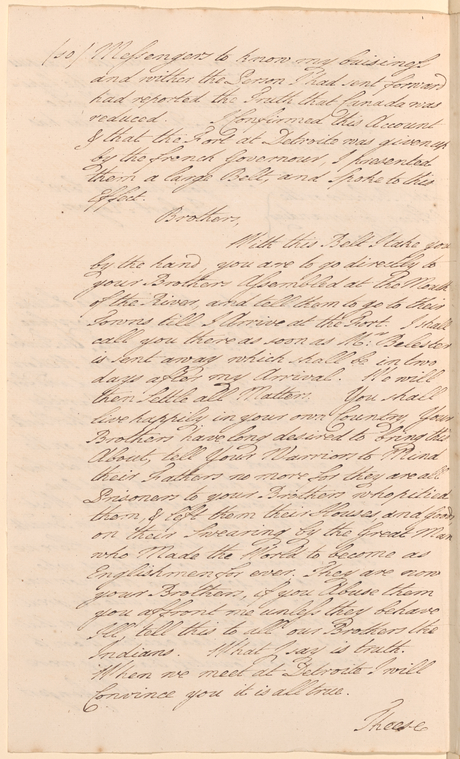 (10) Messengers to know my buisiness
and wither the Person I had sent forward
had reported the Truth that Canada was
reduced. I confirmed this Account
& that the Fort at Detroite was given up
by the french Governour, I presented
them a large Belt, and Spoke to this
Effect.
Brothers,
With this Belt I take you
by the hand, you are to go directly to
your Brothers Assembled at the Mouth
of the River, and tell them to go to their
Towns till I Arrive at the Fort. I shall
call you there as soon as Mr. Belestre
is sent away which shall be in two
days after my Arrival. We will
then Settle all Matters. You shall
live happily in your own Country, Your
Brothers have long desired to bring this
About, tell Your Warriors to Mind
their Fathers no more for they are all
Prisoners to your Brothers who pitied
them, & left them their Houses and Goods
on their Swearing by the Great Man
who Made the World to become as
Englishmen for ever. They are now
your Brothers, if you Abuse them
you affront me unless they behave
Ill, tell this to all our Brothers the
Indians. What I say is truth.
When we meet at Detroite I will
Convince you it is all true.
These